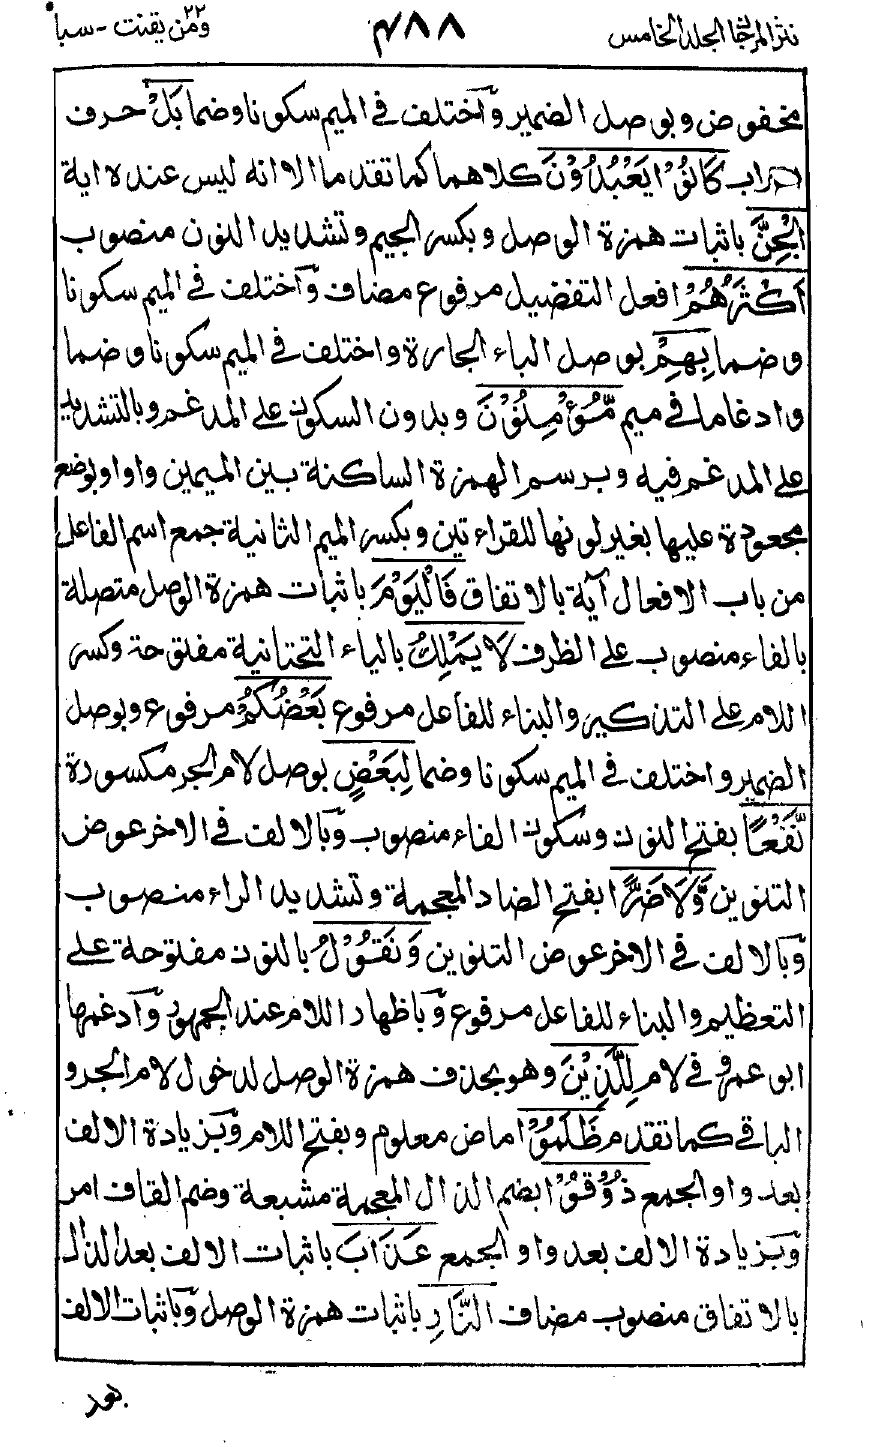 نثر المرجان المجلد الخامس ٤٨٨ ومن يقنت ٢٢ - سبا
مخفوض وبوصل الضمير واختلف في الميم سكونا وضما بَلْ حرف
اضراب كَانُوْا يَعْبُدُوْنَ كلاهما كما تقدما الا انه ليس عنده اية
الْجِنَّ باثبات همزة الوصل وبكسر الجيم وتشديد النون منصوب
اَكْثَرُهُمْ افعل التفضيل مرفوع مضاف واختلف في الميم سكونا
وضما بِهِمْ بوصل الباء الجارة واختلف في الميم سكونا وضما
وادغاما في ميم مُّؤْمِنُوْنَ وبدون السكون على المدغم وبالتشديد
على المدغم فيه وبرسم الهمزة الساكنة بين الميمين واوا وبوضع
مجعودة عليها بغير لونها للقراءتين وبكسر الميم الثانية جمع اسم الفاعل
من باب الافعال آية بالاتفاق فَالْيَوْمَ باثبات همزة الوصل متصلة
بالفاء منصوب على الظرف لَا يَمْلِكُ بالياء التحتانية مفتوحة وكسر
اللام على التذكير والبناء للفاعل مرفوع بَعْضُكُمْ مرفوع وبوصل
الضمير واختلف في الميم سكونا وضما لِبَعْضٍ بوصل لام الجر مكسورة
نَّفْعًا بفتح النون وسكون الفاء منصوب وبالالف في الاخر عوض
التنوين وَّلَا ضَرًّا بفتح الضاد المعجمة وتشديد الراء منصوب
وبالالف في الاخر عوض التنوين وَنَقُوْلُ بالنون مفتوحة على
التعظيم والبناء للفاعل مرفوع وباظهار اللام عند الجمهور وادغمها
ابو عمرو في لام لِلَّذِيْنَ وهو بحذف همزة الوصل لدخول لام الجر و
الباقي كما تقدم ظَلَمُوْا ماض معلوم وبفتح اللام وبزيادة الالف
بعد واو الجمع ذُوْقُوْا بضم الذال المعجمة مشبعة وضم القاف امر
وبزيادة الالف بعد واو الجمع عَذَابَ باثبات الالف بعد الذال
بالاتفاق منصوب مضاف النَّارِ باثبات همزة الوصل وباثبات الالف
بعد